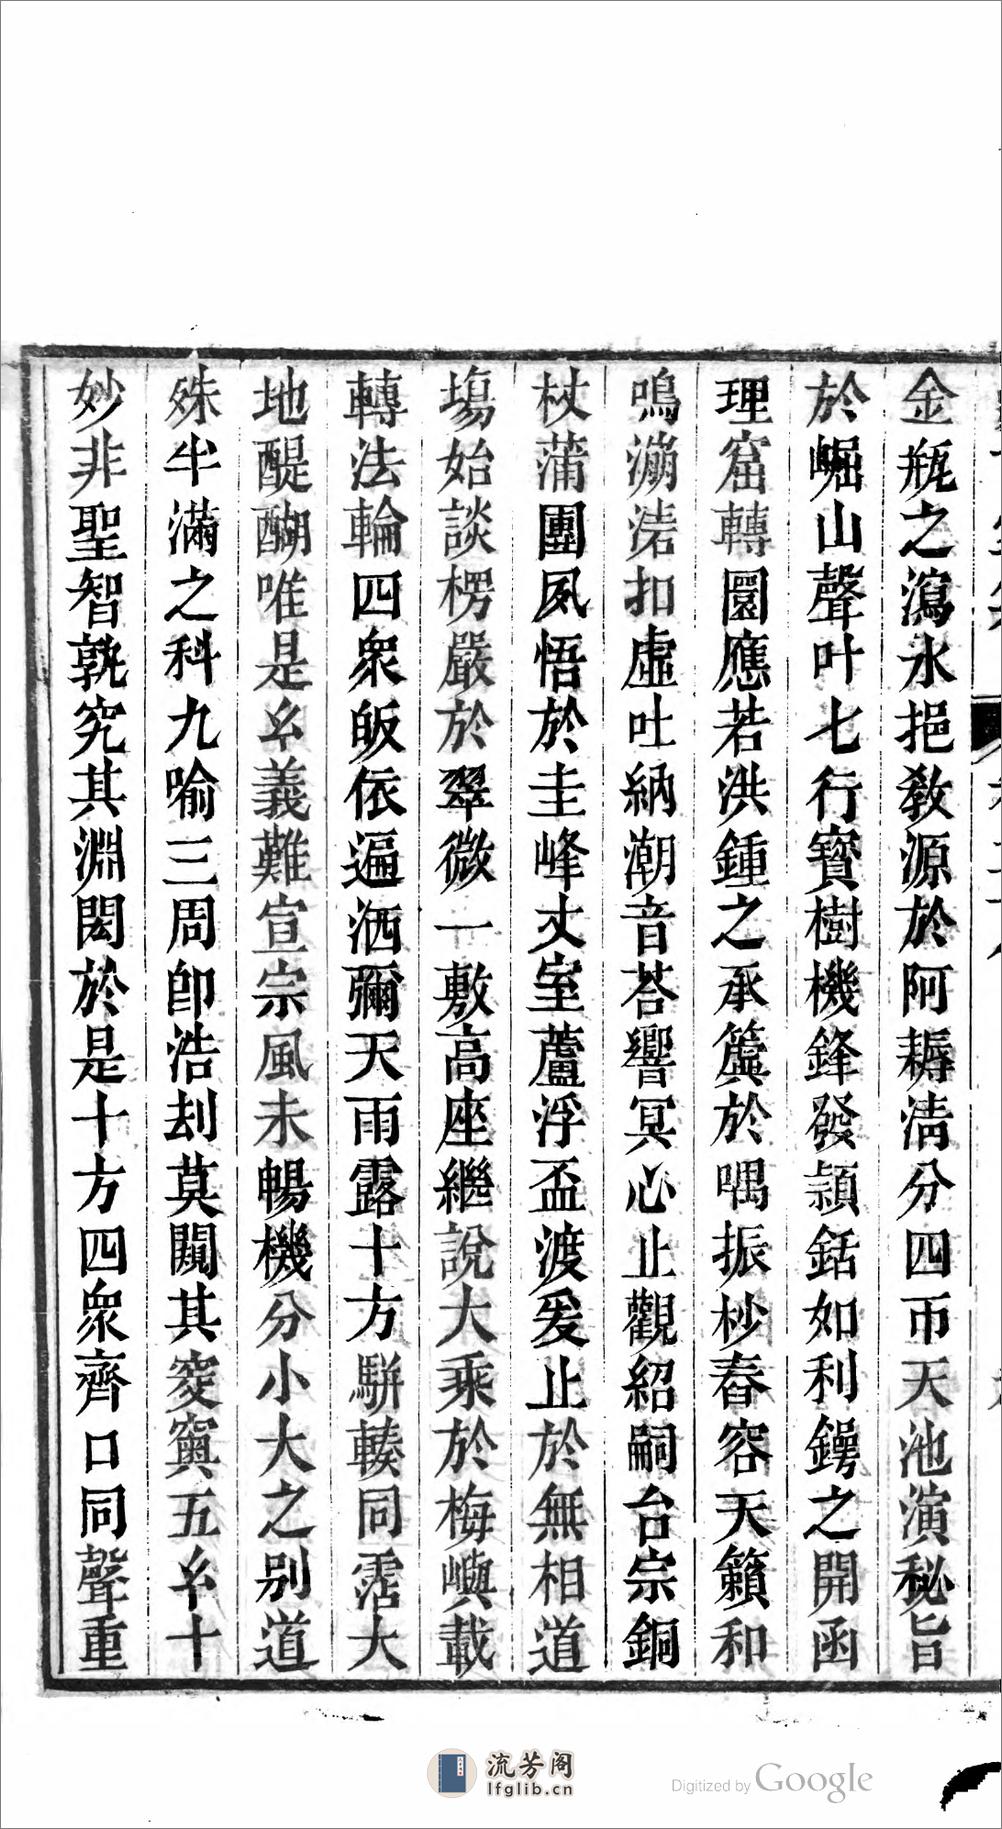 金瓶之瀉水挹敎源於阿耨淸分四帀天池演秘旨
於崛山聲叶七行寳樹機鋒發頴銛如利鍔之開函
理窟轉圜應若洪鍾之承簴於喁振杪舂容天籟和
鳴漰渃扣虛吐納潮音荅響冥心止觀紹嗣台宗銅
杖蒲團夙悟於圭峰丈室蘆浮盃渡爰止於無相道
塲始談楞嚴於翠微一敷高座繼說大乘於梅嶼載
轉法輪四衆皈依遍洒彌天雨露十方駢輳同霑大
地醍醐唯是幺義難宣宗風未暢機分小大之别道
殊半滿之科九喻三周卽浩刦莫闚其窔寘五幺十
妙非聖智孰究其淵閎於是十方四衆齊口同聲重
流芳阁
lfglib.cn
Digitized by Google